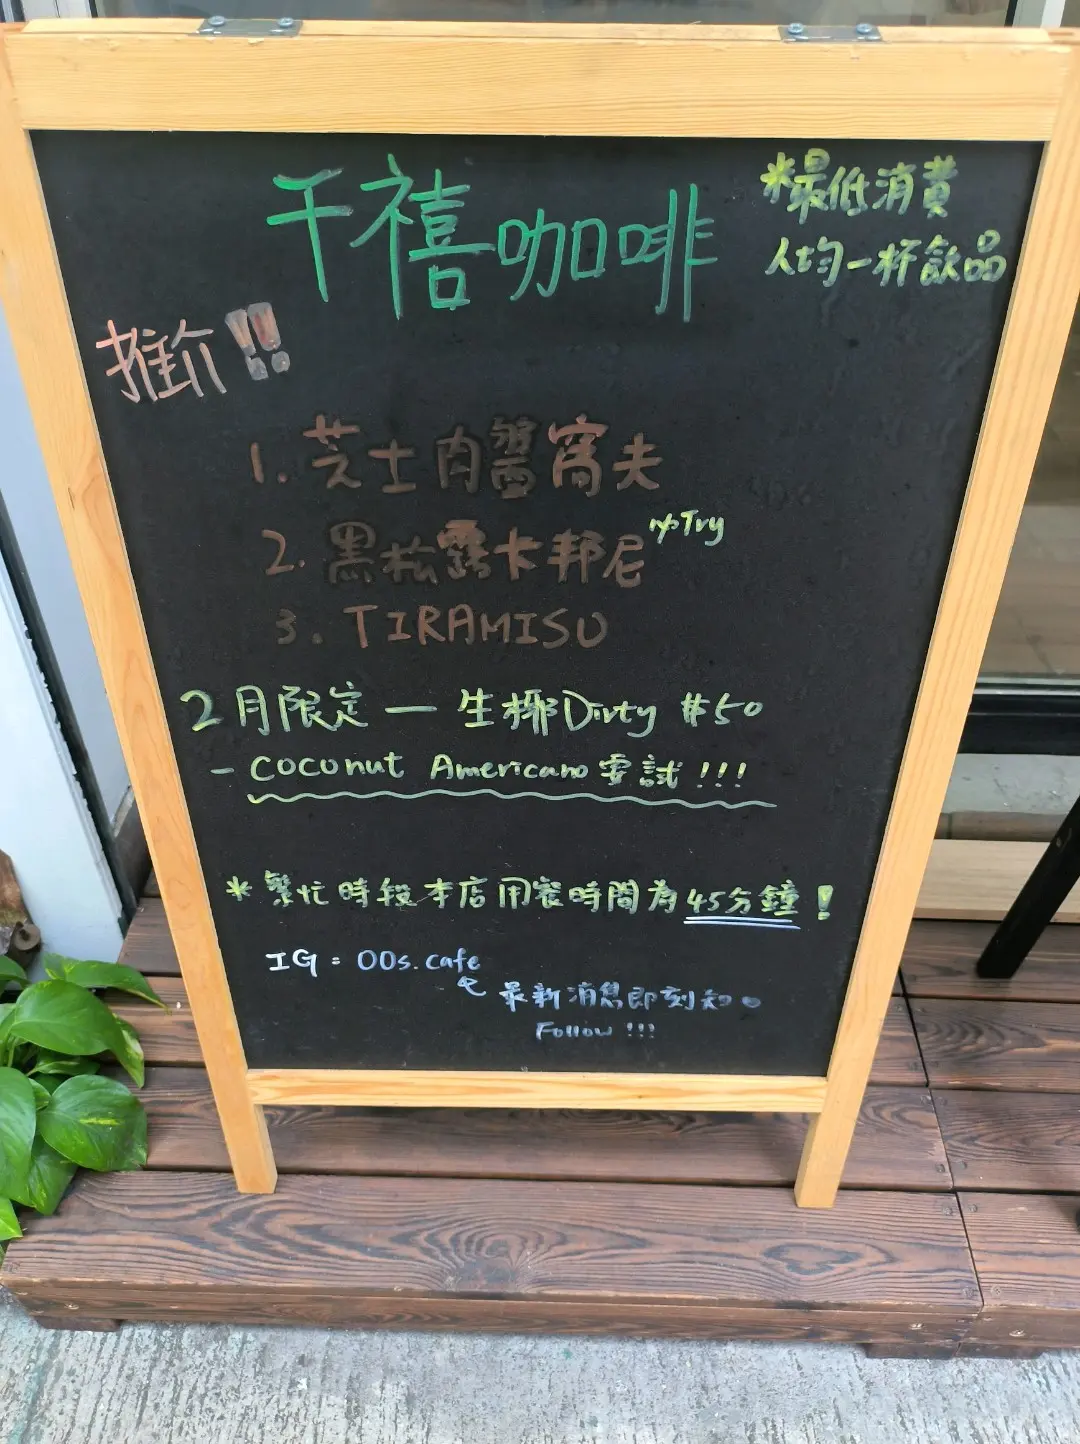 千禧咖啡
*最低消費
人均一杯飲品
推介!!
1. 芝士肉醬窩夫
2. 黑松露卡邦尼 Try
3. TIRAMISU
2月限定 — 生椰Dirty $50
- Coconut Americano 要試!!!
* 繁忙時段本店用餐時間為45分鐘!
IG = 00s.cafe
最新消息即刻知。
Follow !!!